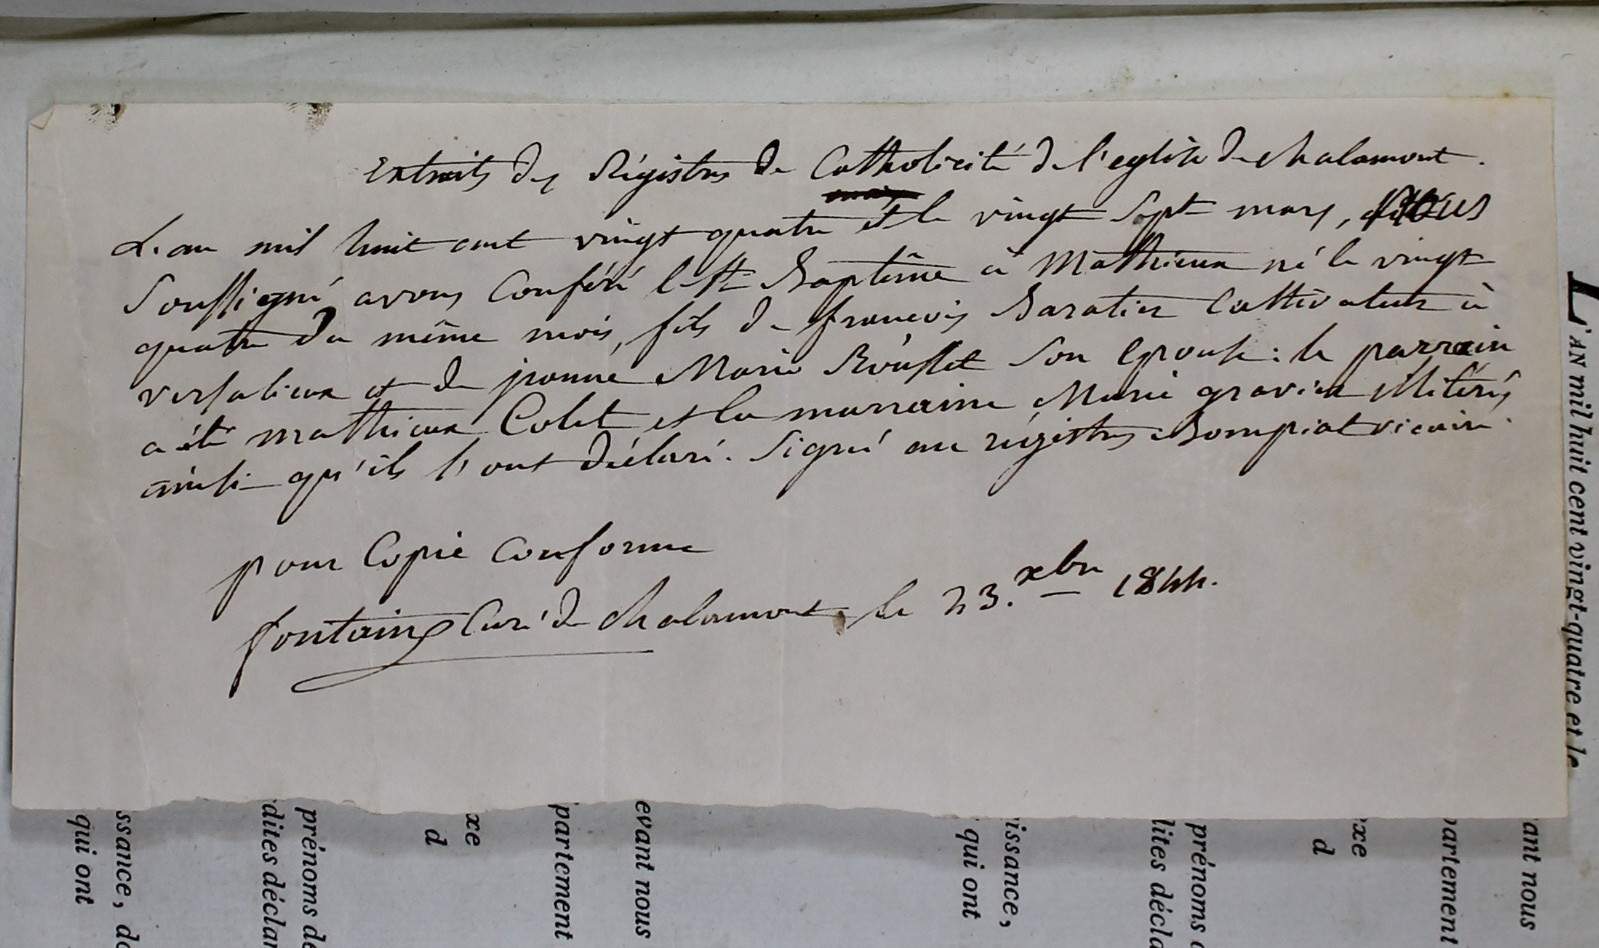 Extraits des Régistres de Catholicité de l'eglise de chalamont.
L'an mil huit cent vingt quatre et le vingt sept mars, nous
soussigné avons conféré le St Baptême à Mathieux né le vingt
quatre du même mois, fils de francois Baratier Cultivateur à
versalieux et de jeanne Marie Rousset son epouse: le parrain
a été mathieux Colet et la marraine Marie gravier illitérés
ainsi qu'ils l'ont déclaré. Signé au régistres Bompiat vicaire.
pour Copie conforme
fontaine Curé de chalamont, le 23. xbre 1844.
L'AN mil huit cent vingt-quatre et le
ssance, de
qui ont
prénoms de
dites déclar
xe
d
partement
evant nous
issance,
qui ont
prénoms d
dites décla
xe
d
partement
ant nous